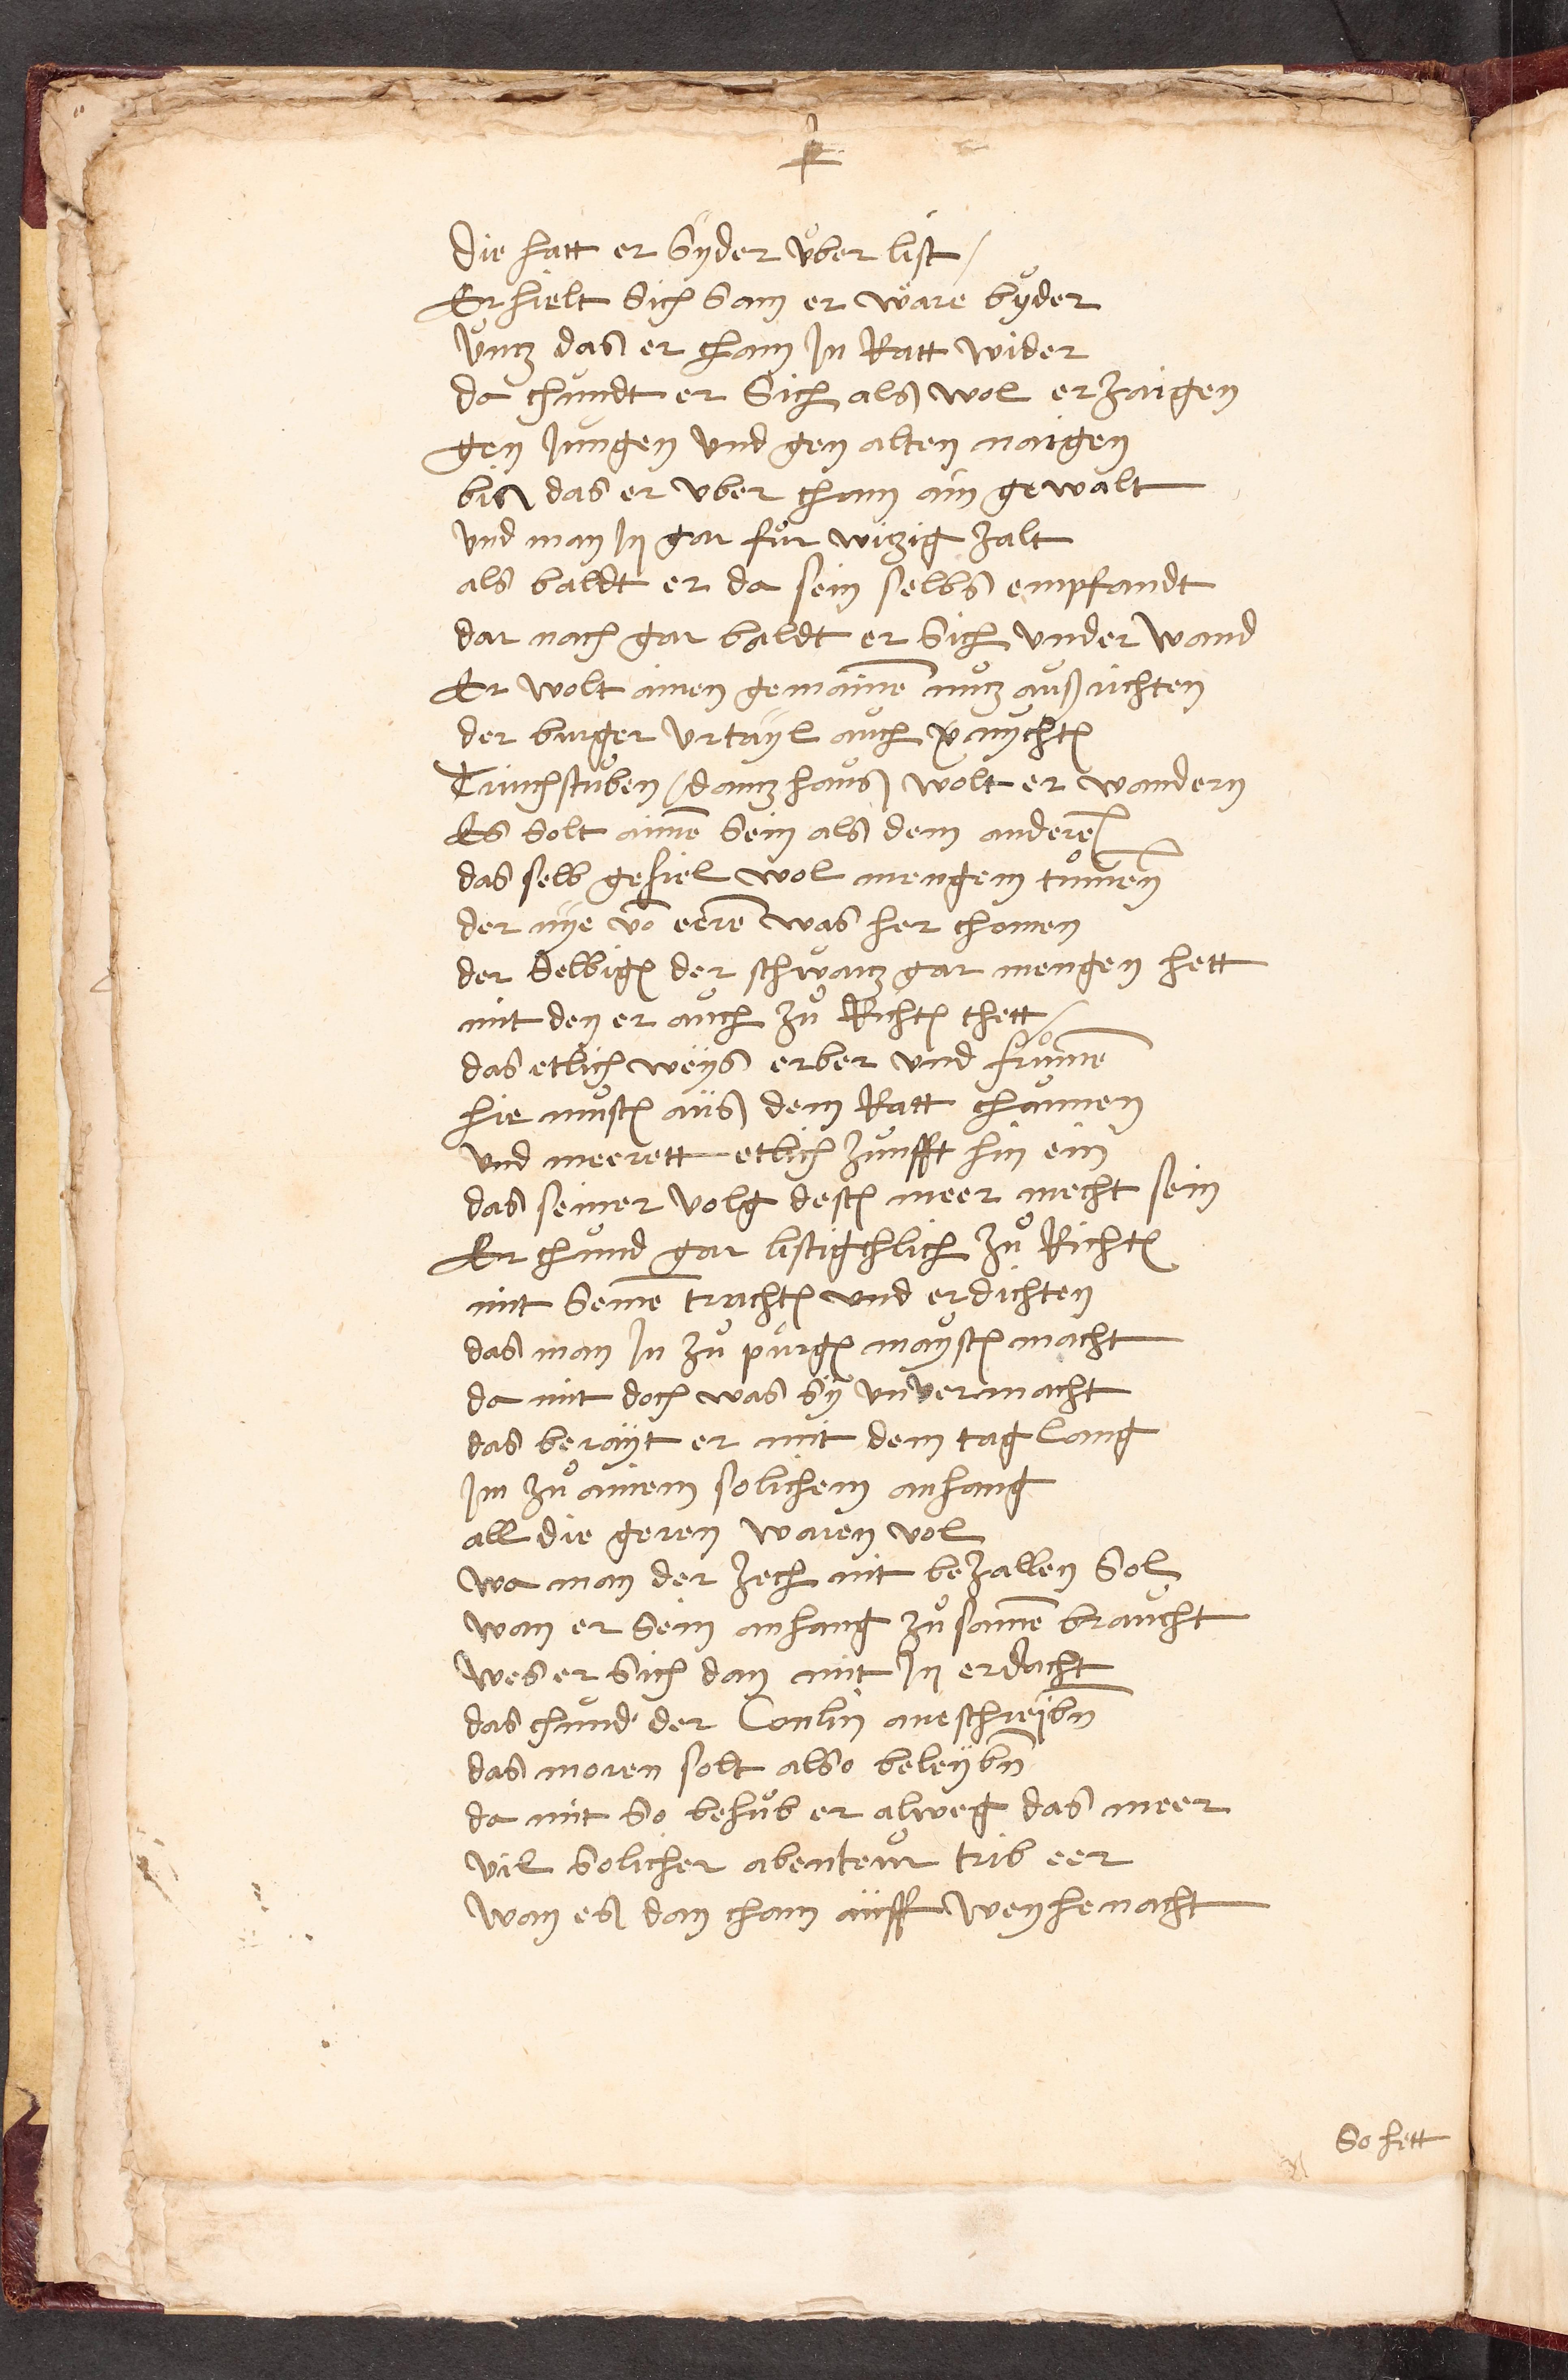 die hatt er syder über list /
Er hielt sich sam er wäre byder
üntz das er cham jn Ratt wider
da chundt er sich als wol erzaigen
gen jungen und gen alten naigen
bis das er uber cham ain gewalt
und man jn gar für witzig zalt
als baldt er da sein selbs empfandt
dar nach gar baldt er sich under wand
Er wolt ainen gemainē nutz aufrichten
der burger urtayl auch vernychtn
Trinchstuben / dantzhaus wolt er wandern
Es solt aimē sein als dem anderē
das selb gefiel wol mengem tumen
der nye vō eerē was her chomen
der selbign der schwantz gar mengen hett
mit den er auch zů Richtn thett /
das etlich weys erber und frumē
hie mustn aus dem Ratt chaumen
und meerett etlich zunfft hin ein
das seiner volg destn meer mecht sein
Er chund gar listigchlich zů Richtn
mit seinē trachtn und erdichten
das man jn zů purgermaystr macht
da mit doch was sy unvermacht
das berayt er mit dem tag lang
jm zů ainem solichem anhang
all die geren waren vol
wa man der zech nit bezallen sol
wan er sein anhang zů samē braucht
wes er sich dan mit jn erdacht
das chund der Conlin ane schreibn
das moren solt also beleybn
da mit so behůb er alweg das meer
vil solicher abenteur trib eer
wan es dan cham auff weyhenacht
so hett